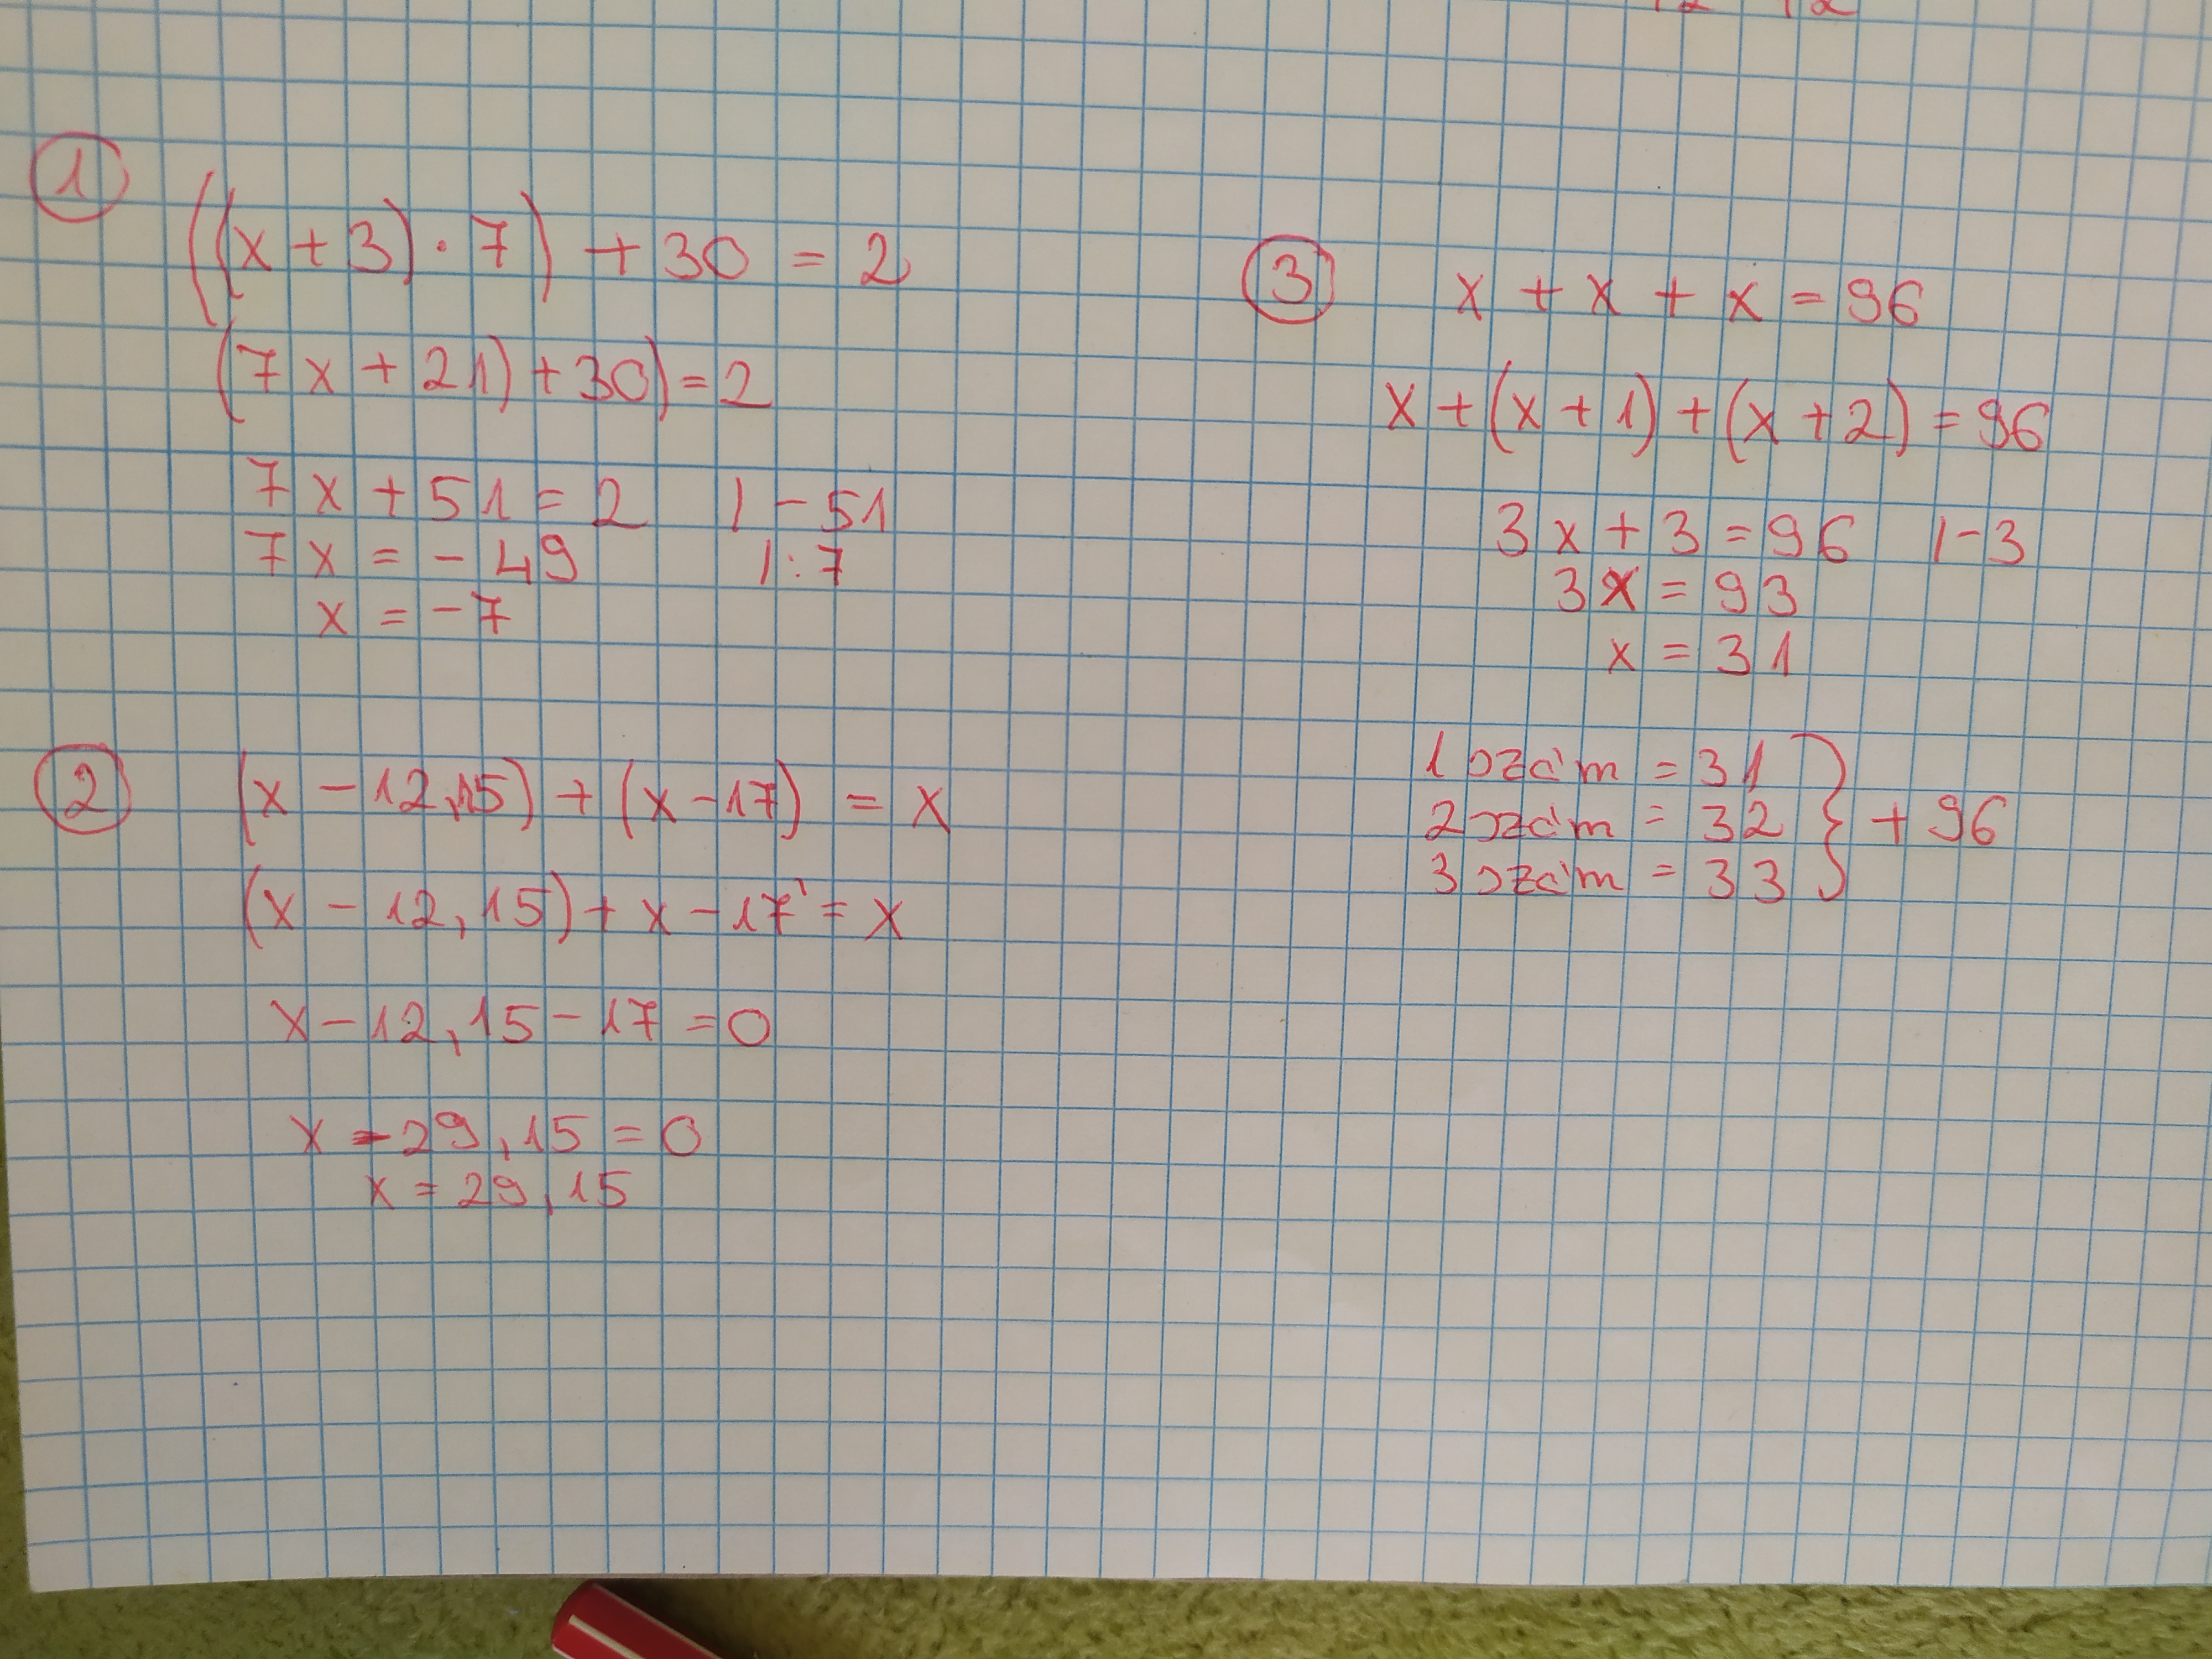 1
((x+3)·7)+30=2
(7x+21)+30)=2
7x+51=2 |-51
7x=-49 |:7
x=-7
2
(x-12,15)+(x-17)=x
(x-12,15)+x-17=x
x-12,15-17=0
x-29,15=0
x=29,15
3
x+x+x=96
x+(x+1)+(x+2)=96
3x+3=96 |-3
3x=93
x=31
1 szám=31
2 szám=32 } + 96
3 szám=33